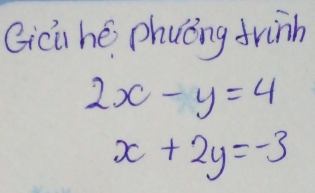 Giải hệ phương trình
2x - y = 4
x + 2y = -3